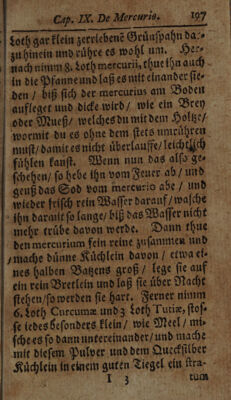 Cap. IX. De Mercurio. 197
Loth gar klein zerriebene Grünspahn da-
zu hinein und rühre es wohl um. Her-
nach nimm 8. Loth mercurii, thue ihn auch
in die Pfanne und laß es mit einander sie-
den / biß sich der mercurius am Boden
aufleget und dicke wird / wie ein Brey
oder Mueß / welches du mit dem Holtze /
wormit du es ohne dem stets umrühren
must / damit es nicht überlauffe / leichtlich
fühlen kanst. Wenn nun das also ge-
schehen / so hebe ihn vom Feuer ab / und
geuß das Sod vom mercurio abe / und
wieder frisch rein Wasser darauf / wasche
ihn darmit so lange / biß das Wasser nicht
mehr trübe davon werde. Dann thue
den mercurium fein reine zusammen und
mache dünne Küchlein davon / etwa ei-
nes halben Batzens groß / lege sie auf
ein rein Bretlein und laß sie über Nacht
stehen / so werden sie hart. Ferner nimm
6. Loth Curcumæ und 3 Loth Tutiæ, stos-
se iedes besonders klein / wie Meel / mi-
sche es so dann untereinander / und mache
mit diesem Pulver und dem Quecksilber
Küchlein in einem guten Tiegel ein stra-
I 3 tum